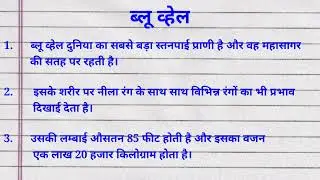 ब्लू व्हेल
1. ब्लू व्हेल दुनिया का सबसे बड़ा स्तनपाई प्राणी है और वह महासागर
की सतह पर रहती है।
2. इसके शरीर पर नीला रंग के साथ साथ विभिन्न रंगों का भी प्रभाव
दिखाई देता है।
3. उसकी लम्बाई औसतन 85 फीट होती है और इसका वजन
एक लाख 20 हजार किलोग्राम होता है।